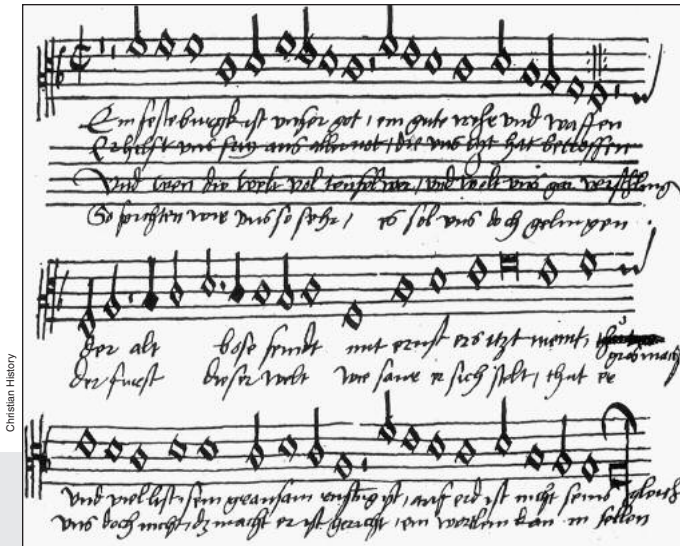 Ein feste burgk ist unser got / ein gute wehr und waffen
Er hilft uns frey aus aller not / die uns itzt hat betroffen
Und wen die welt vol teufel wer / und wolt uns gar verschling
So furchten wir uns so sehr / es sol uns doch gelingen
der alt bose feindt mit ernst ers itzt meint,
gros macht
der furst dieser welt wie saur er sich stelt / thut er
und viel list sein grausam rustug ist / auf erd ist nicht seins gleich
uns doch nicht / dz macht er ist gericht / ein wortlein kan in fellen
Christian History